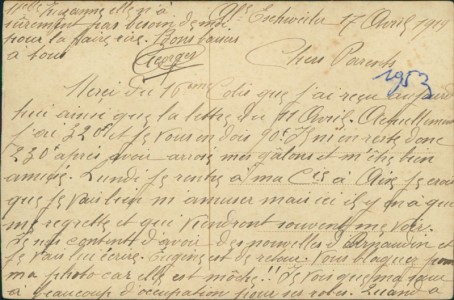 sûrement pas besoin de moi
pour la faire cire. Bons baisers
à tous
Georges
Eschweiler 17 Avril 1919
Chers Parents
1953
Merci du 16ème Colis que j'ai reçu aujourd
hui ainsi que la lettre du 11 Avril. Actuellement
j'ai 320 et je vous en dois 90. Il m'en reste donc
230 après avoir arrosé mes galons et m'être bien
amusé. Lundi je rentre à ma Cie à Aix je crois
que je vais bien m'amuser mais ici il y en a qui
me regrette et qui viendront souvent me voir.
Je suis content d'avoir des nouvelles d'
je vais lui écrire. Eugène est de retour. Vous blaguez
ma photo car elle est môche!! Je vois que ma sœur
a beaucoup d'occupation pour ses robes. Quand à